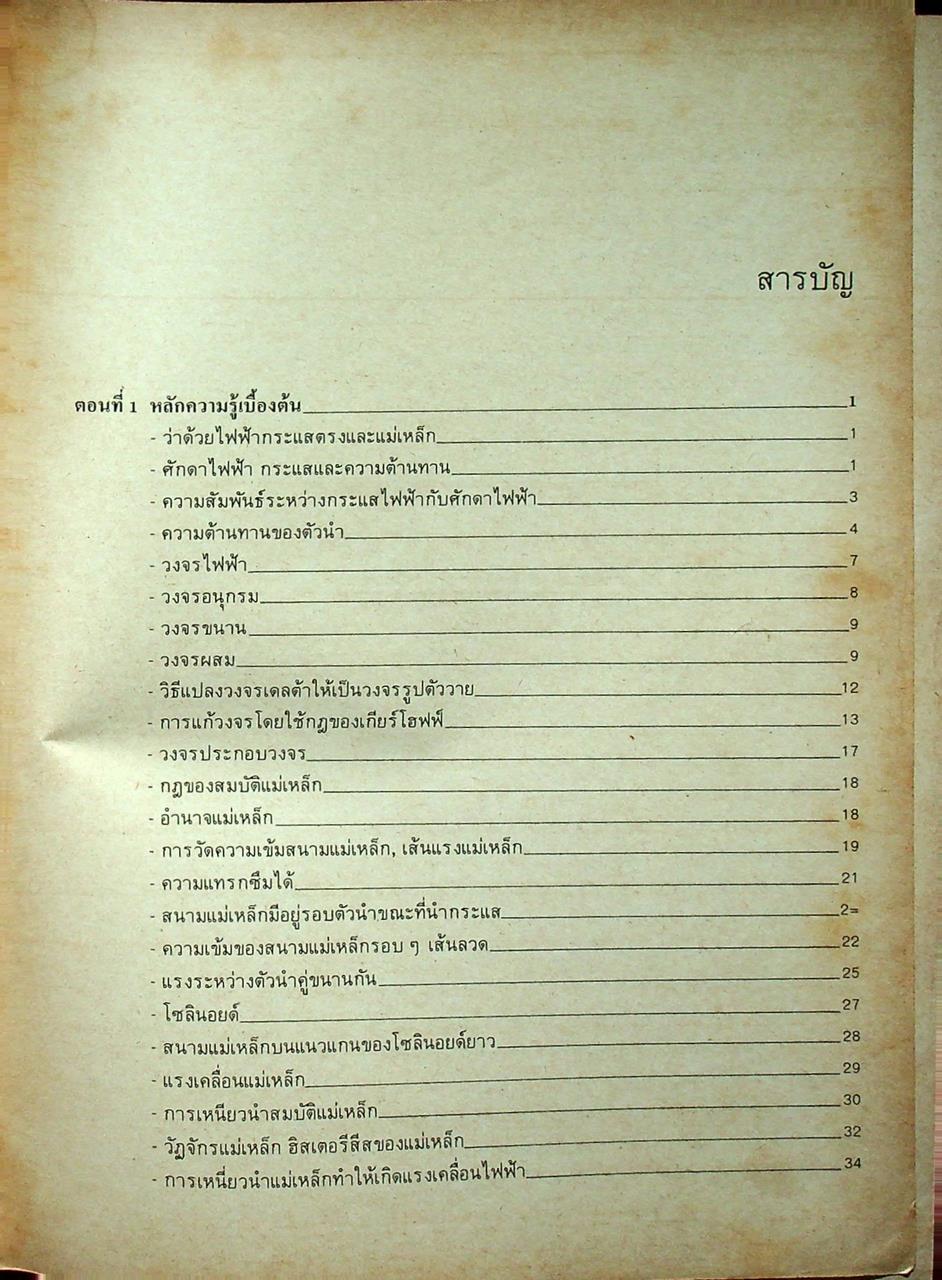 สารบัญ
ตอนที่ 1 หลักความรู้เบื้องต้น 1
- ว่าด้วยไฟฟ้ากระแสตรงและแม่เหล็ก 1
- ศักดาไฟฟ้า กระแสและความต้านทาน 1
- ความสัมพันธ์ระหว่างกระแสไฟฟ้ากับศักดาไฟฟ้า 3
- ความต้านทานของตัวนำ 4
- วงจรไฟฟ้า 7
- วงจรอนุกรม 8
- วงจรขนาน 9
- วงจรผสม 9
- วิธีแปลงวงจรเดลต้าให้เป็นวงจรรูปตัววาย 12
- การแก้วงจรโดยใช้กฎของเกียร์โฮฟฟ์ 13
- วงจรประกอบวงจร 17
- กฎของสมบัติแม่เหล็ก 18
- อำนาจแม่เหล็ก 18
- การวัดความเข้มสนามแม่เหล็ก, เส้นแรงแม่เหล็ก 19
- ความแทรกซึมได้ 21
- สนามแม่เหล็กมีอยู่รอบตัวนำขณะที่นำกระแส 2=
- ความเข้มของสนามแม่เหล็กรอบ ๆ เส้นลวด 22
- แรงระหว่างตัวนำคู่ขนานกัน 25
- โซลินอยด์ 27
- สนามแม่เหล็กบนแนวแกนของโซลินอยด์ยาว 28
- แรงเคลื่อนแม่เหล็ก 29
- การเหนียวนำสมบัติแม่เหล็ก 30
- วัฏจักรแม่เหล็ก ฮิสเตอรีสีสของแม่เหล็ก 32
- การเหนี่ยวนำแม่เหล็กทำให้เกิดแรงเคลื่อนไฟฟ้า 34